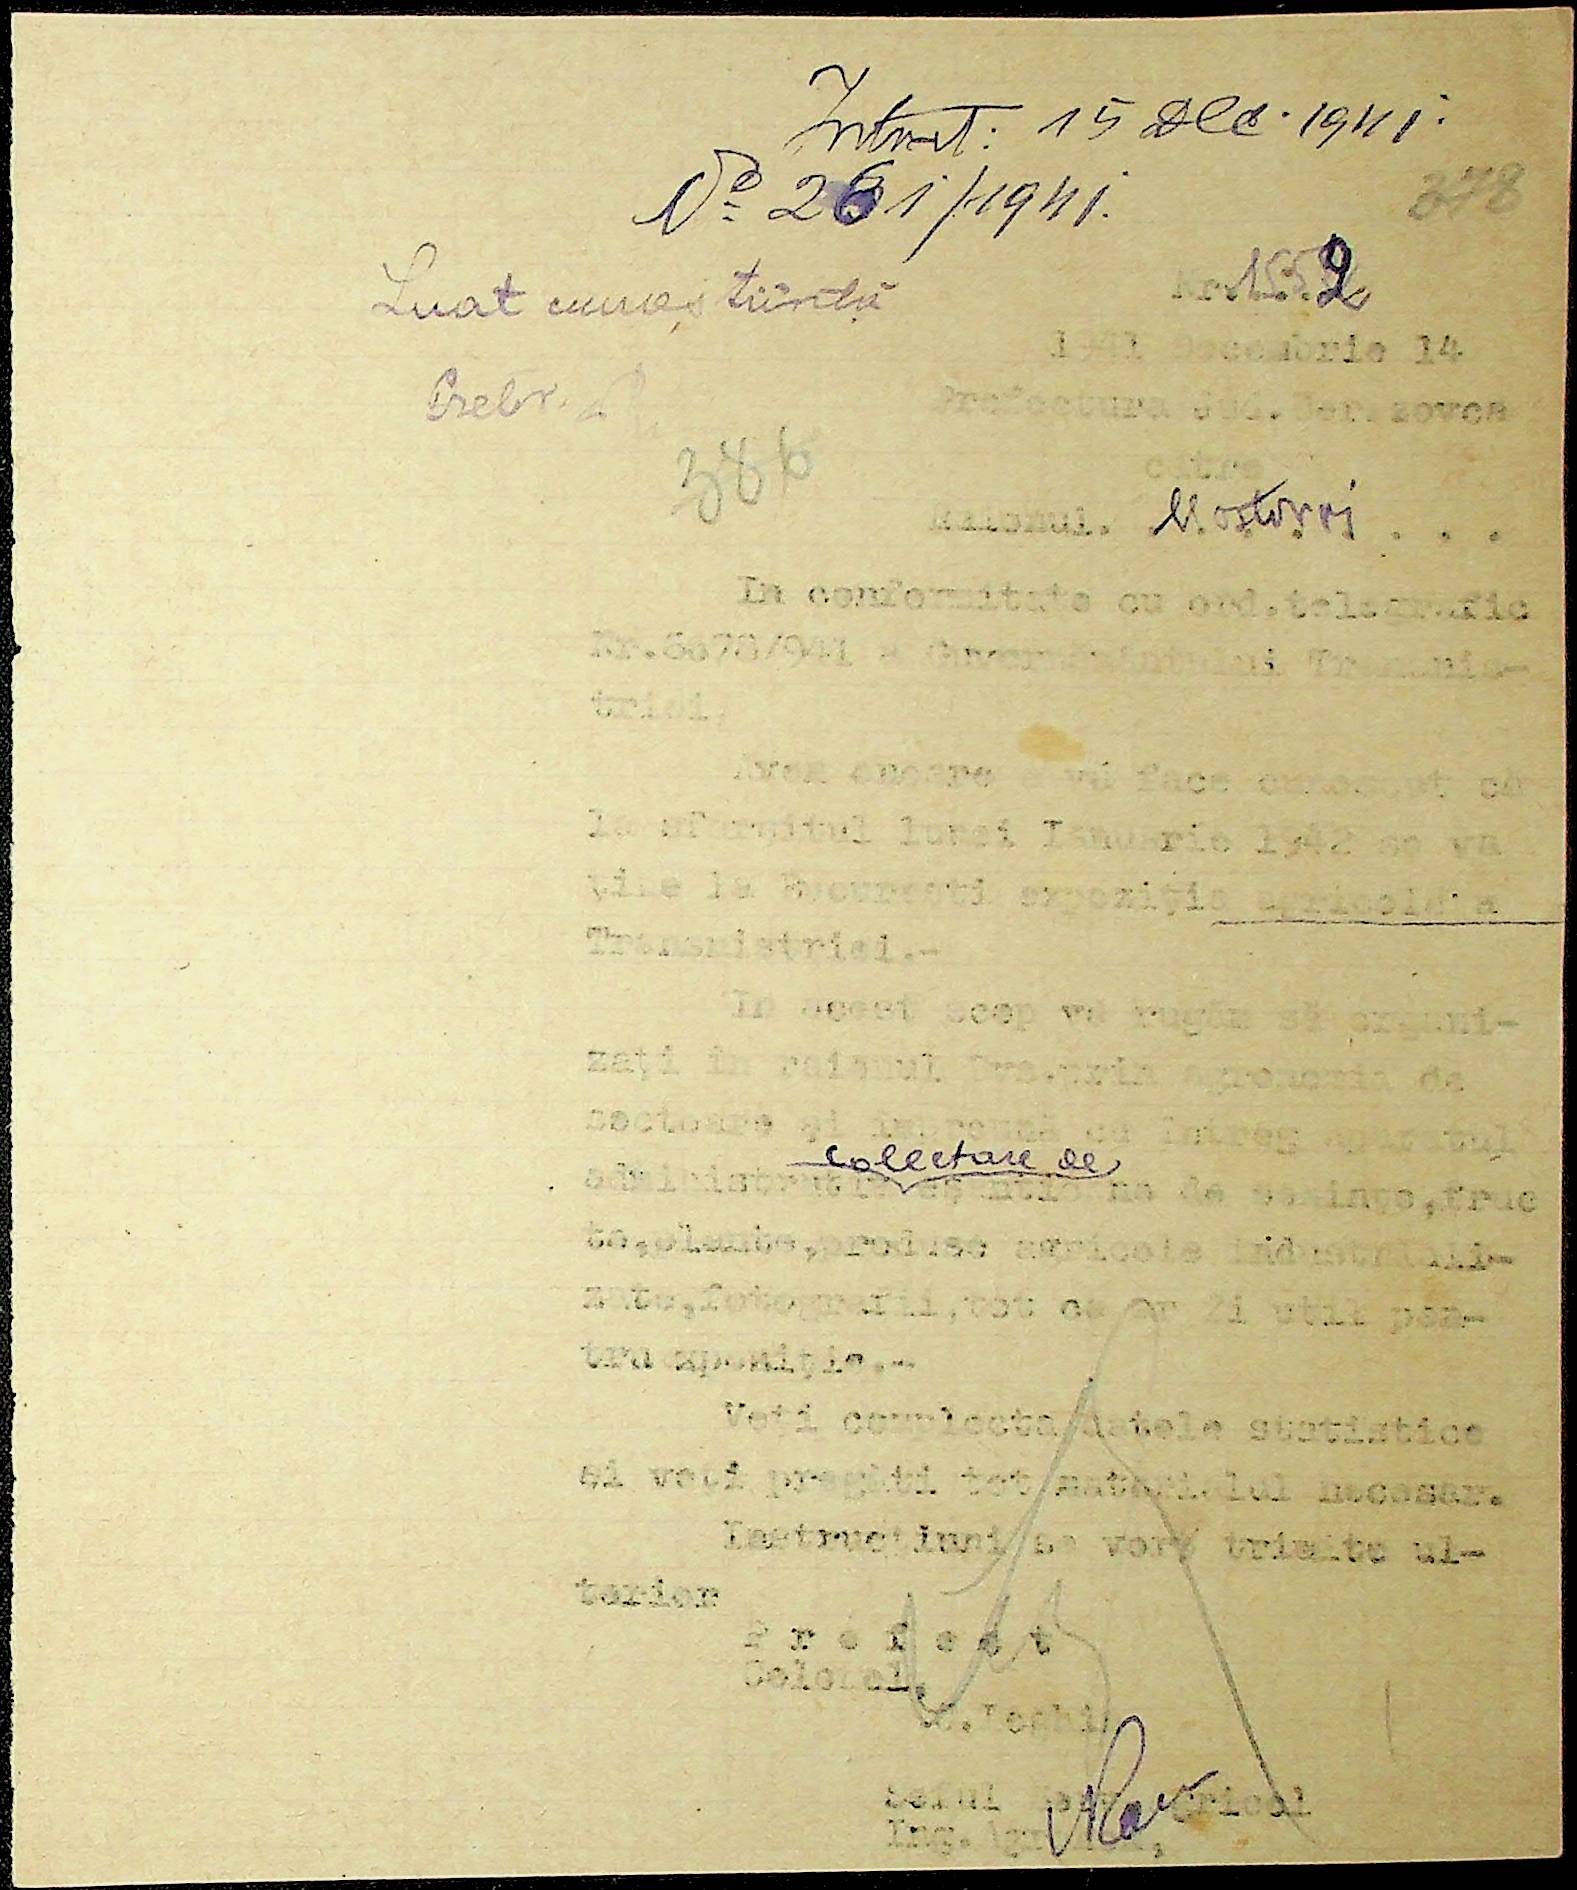 Intrat: 15 Dec. 1941.
No 261/1941.
378
Luat cunoștiință
Nr. 1552
Pretor.
1941 Decembrie 14
Prefectura Jud. Berezovca
386
către
Raionul. Mostovoi . . .
In conformitate cu ord.telegrafic
Nr. /941 a Guvernamântului Transnis-
triei,
Avem onoare a vă face cunoscut că
la sfârșitul lunei Ianuarie 1942 se va
ține la București expoziția agricolă a
Transnistriei.-
In acest scop vă rugăm să organi-
zați în raionul Dvs.prin agronomii de
sectoare și împreună cu întreg aparatul
colectare de
administrativ de semințe,fruc
te,plante,produse agricole industriali-
zate,fotografii,tot ce ar fi util pen-
tru expoziție.-
Veți complecta datele statistice
și veți pregăti tot materialul necesar.
Instrucțiuni se vor trimite ul-
terior
P r e f e c t
Colonel,
Șeful Agricol
Ing.